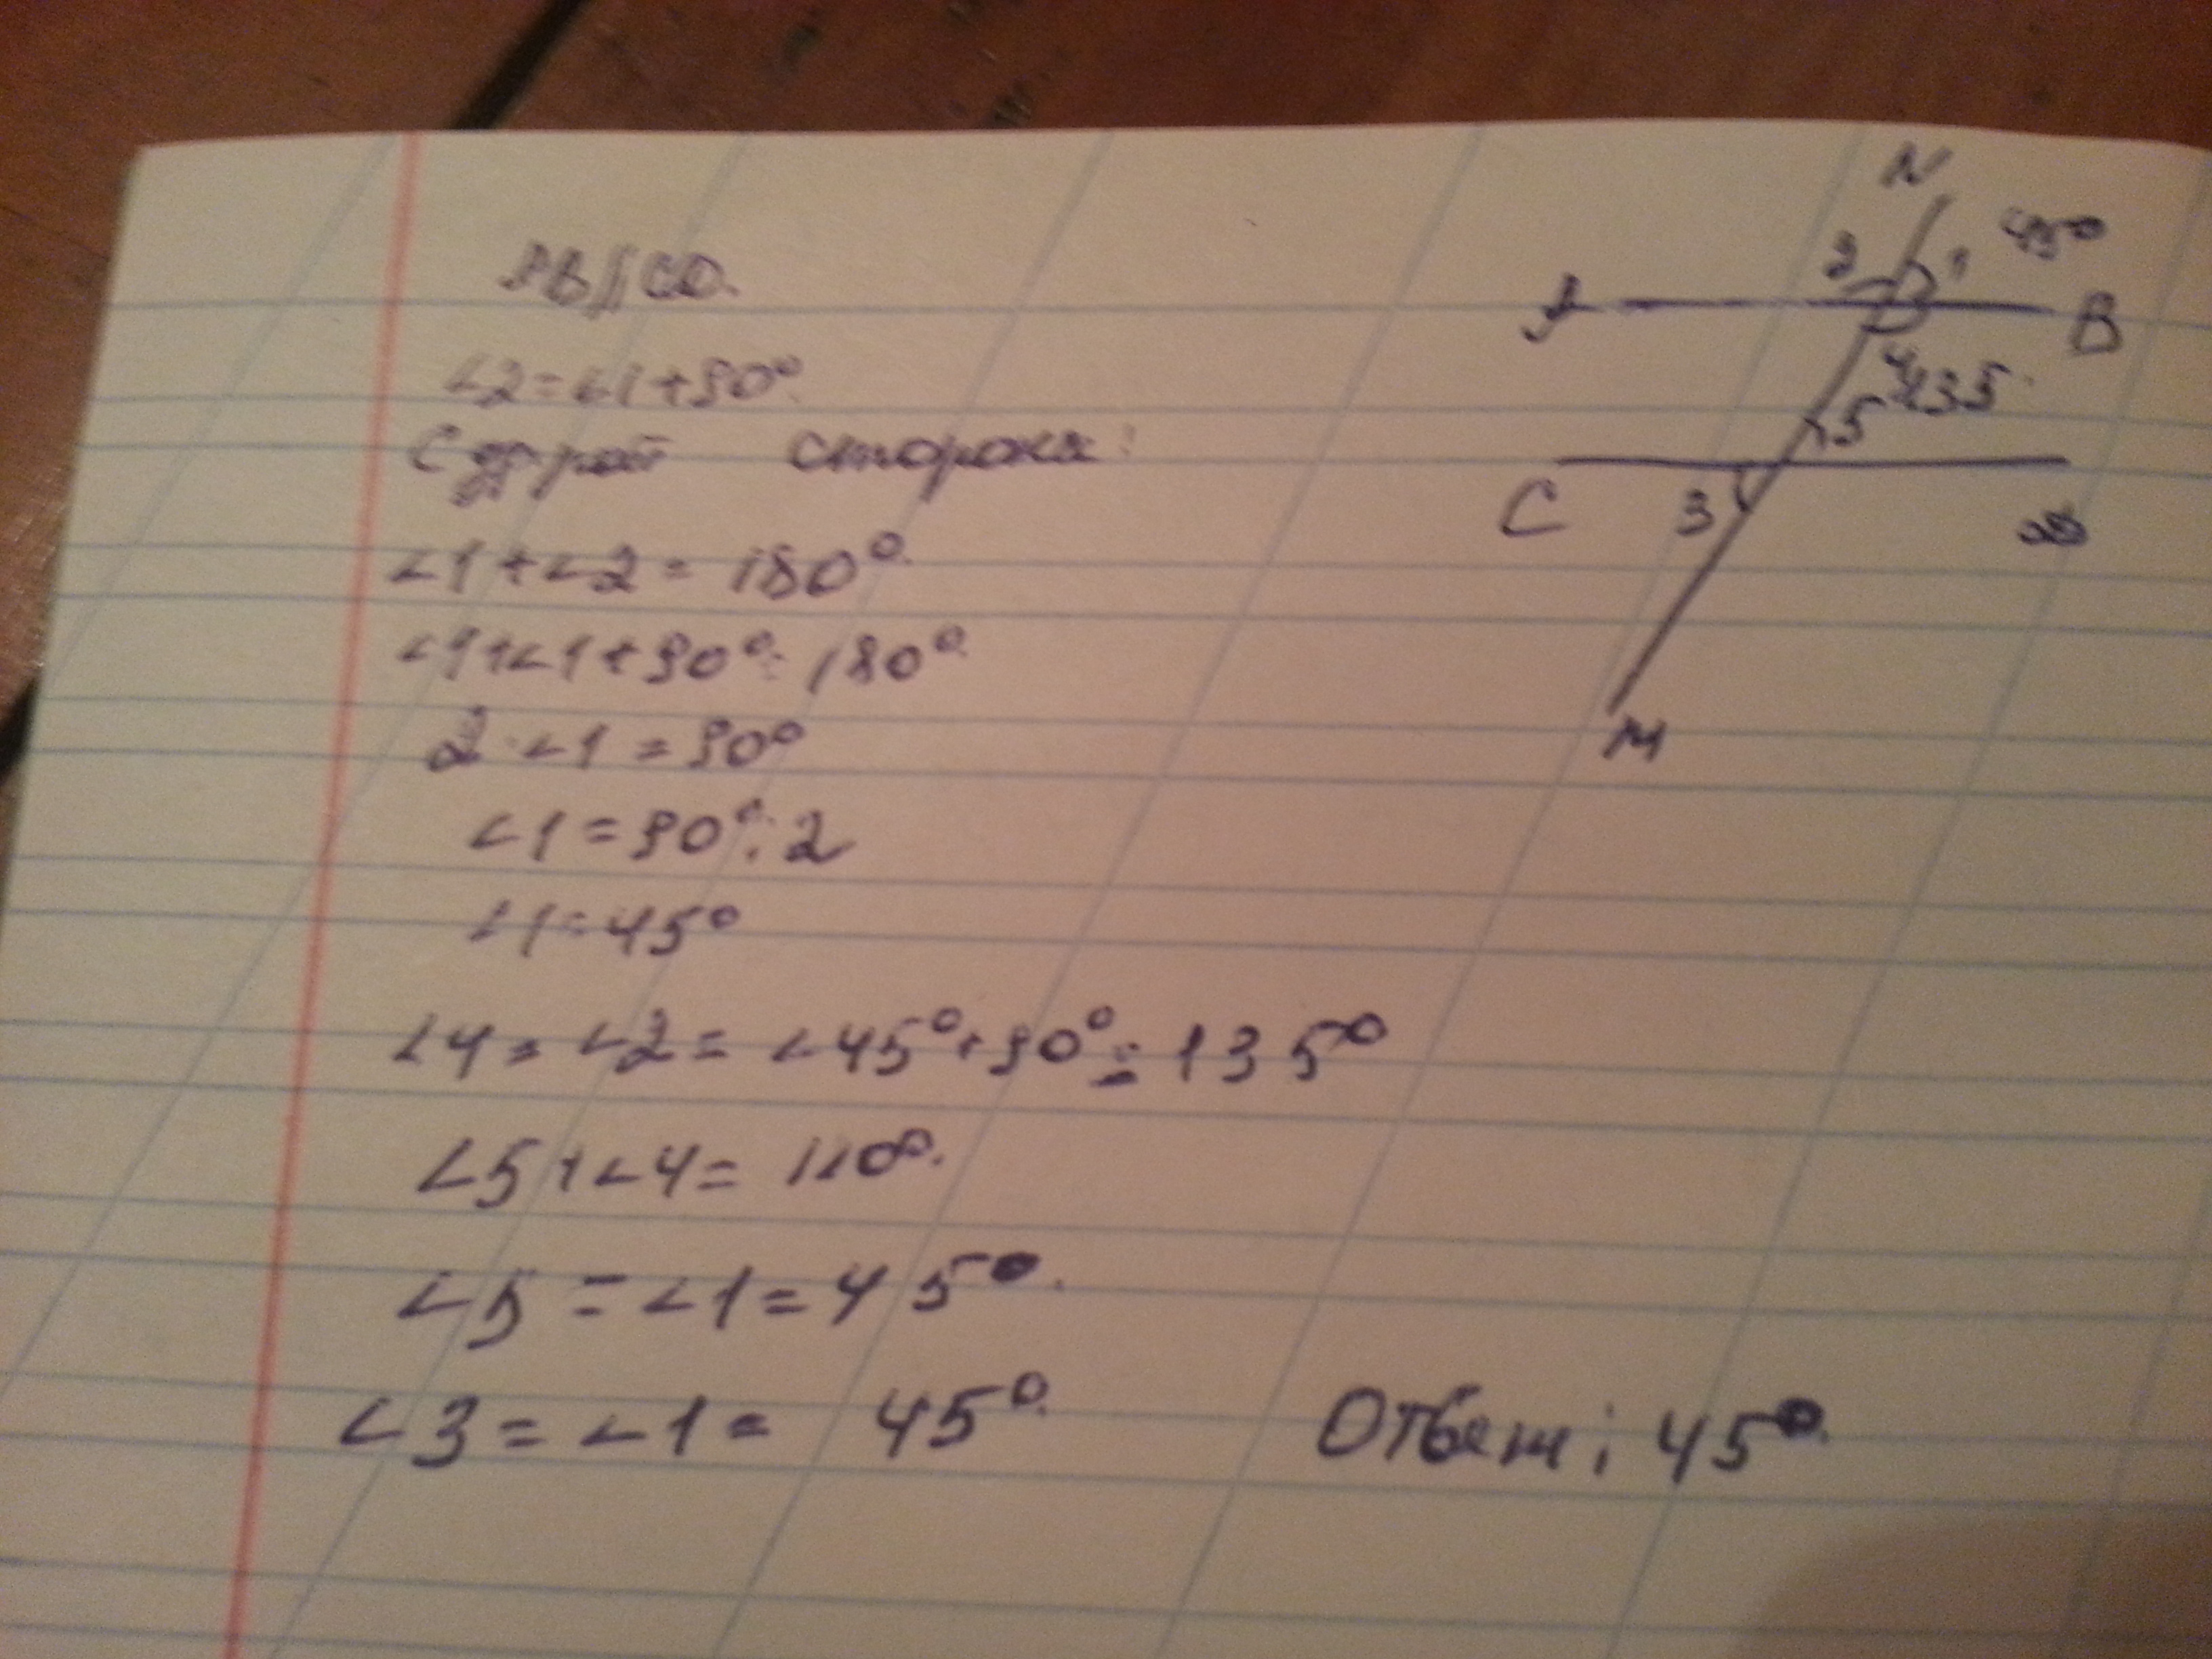 AB∥CD.
∠2=∠1+90°.
С другой стороны:
∠1+∠2= 180°.
∠1+∠1+90°= 180°.
2·∠1 = 90°
∠1=90°:2
∠1=45°
∠4=∠2= ∠45°+90°=135°
∠5+∠4= 180°.
∠5=∠1=45°.
∠3=∠1= 45°.
Ответ: 45°.
N
2 1 45°
A B
4 135
5
C 3 D
M